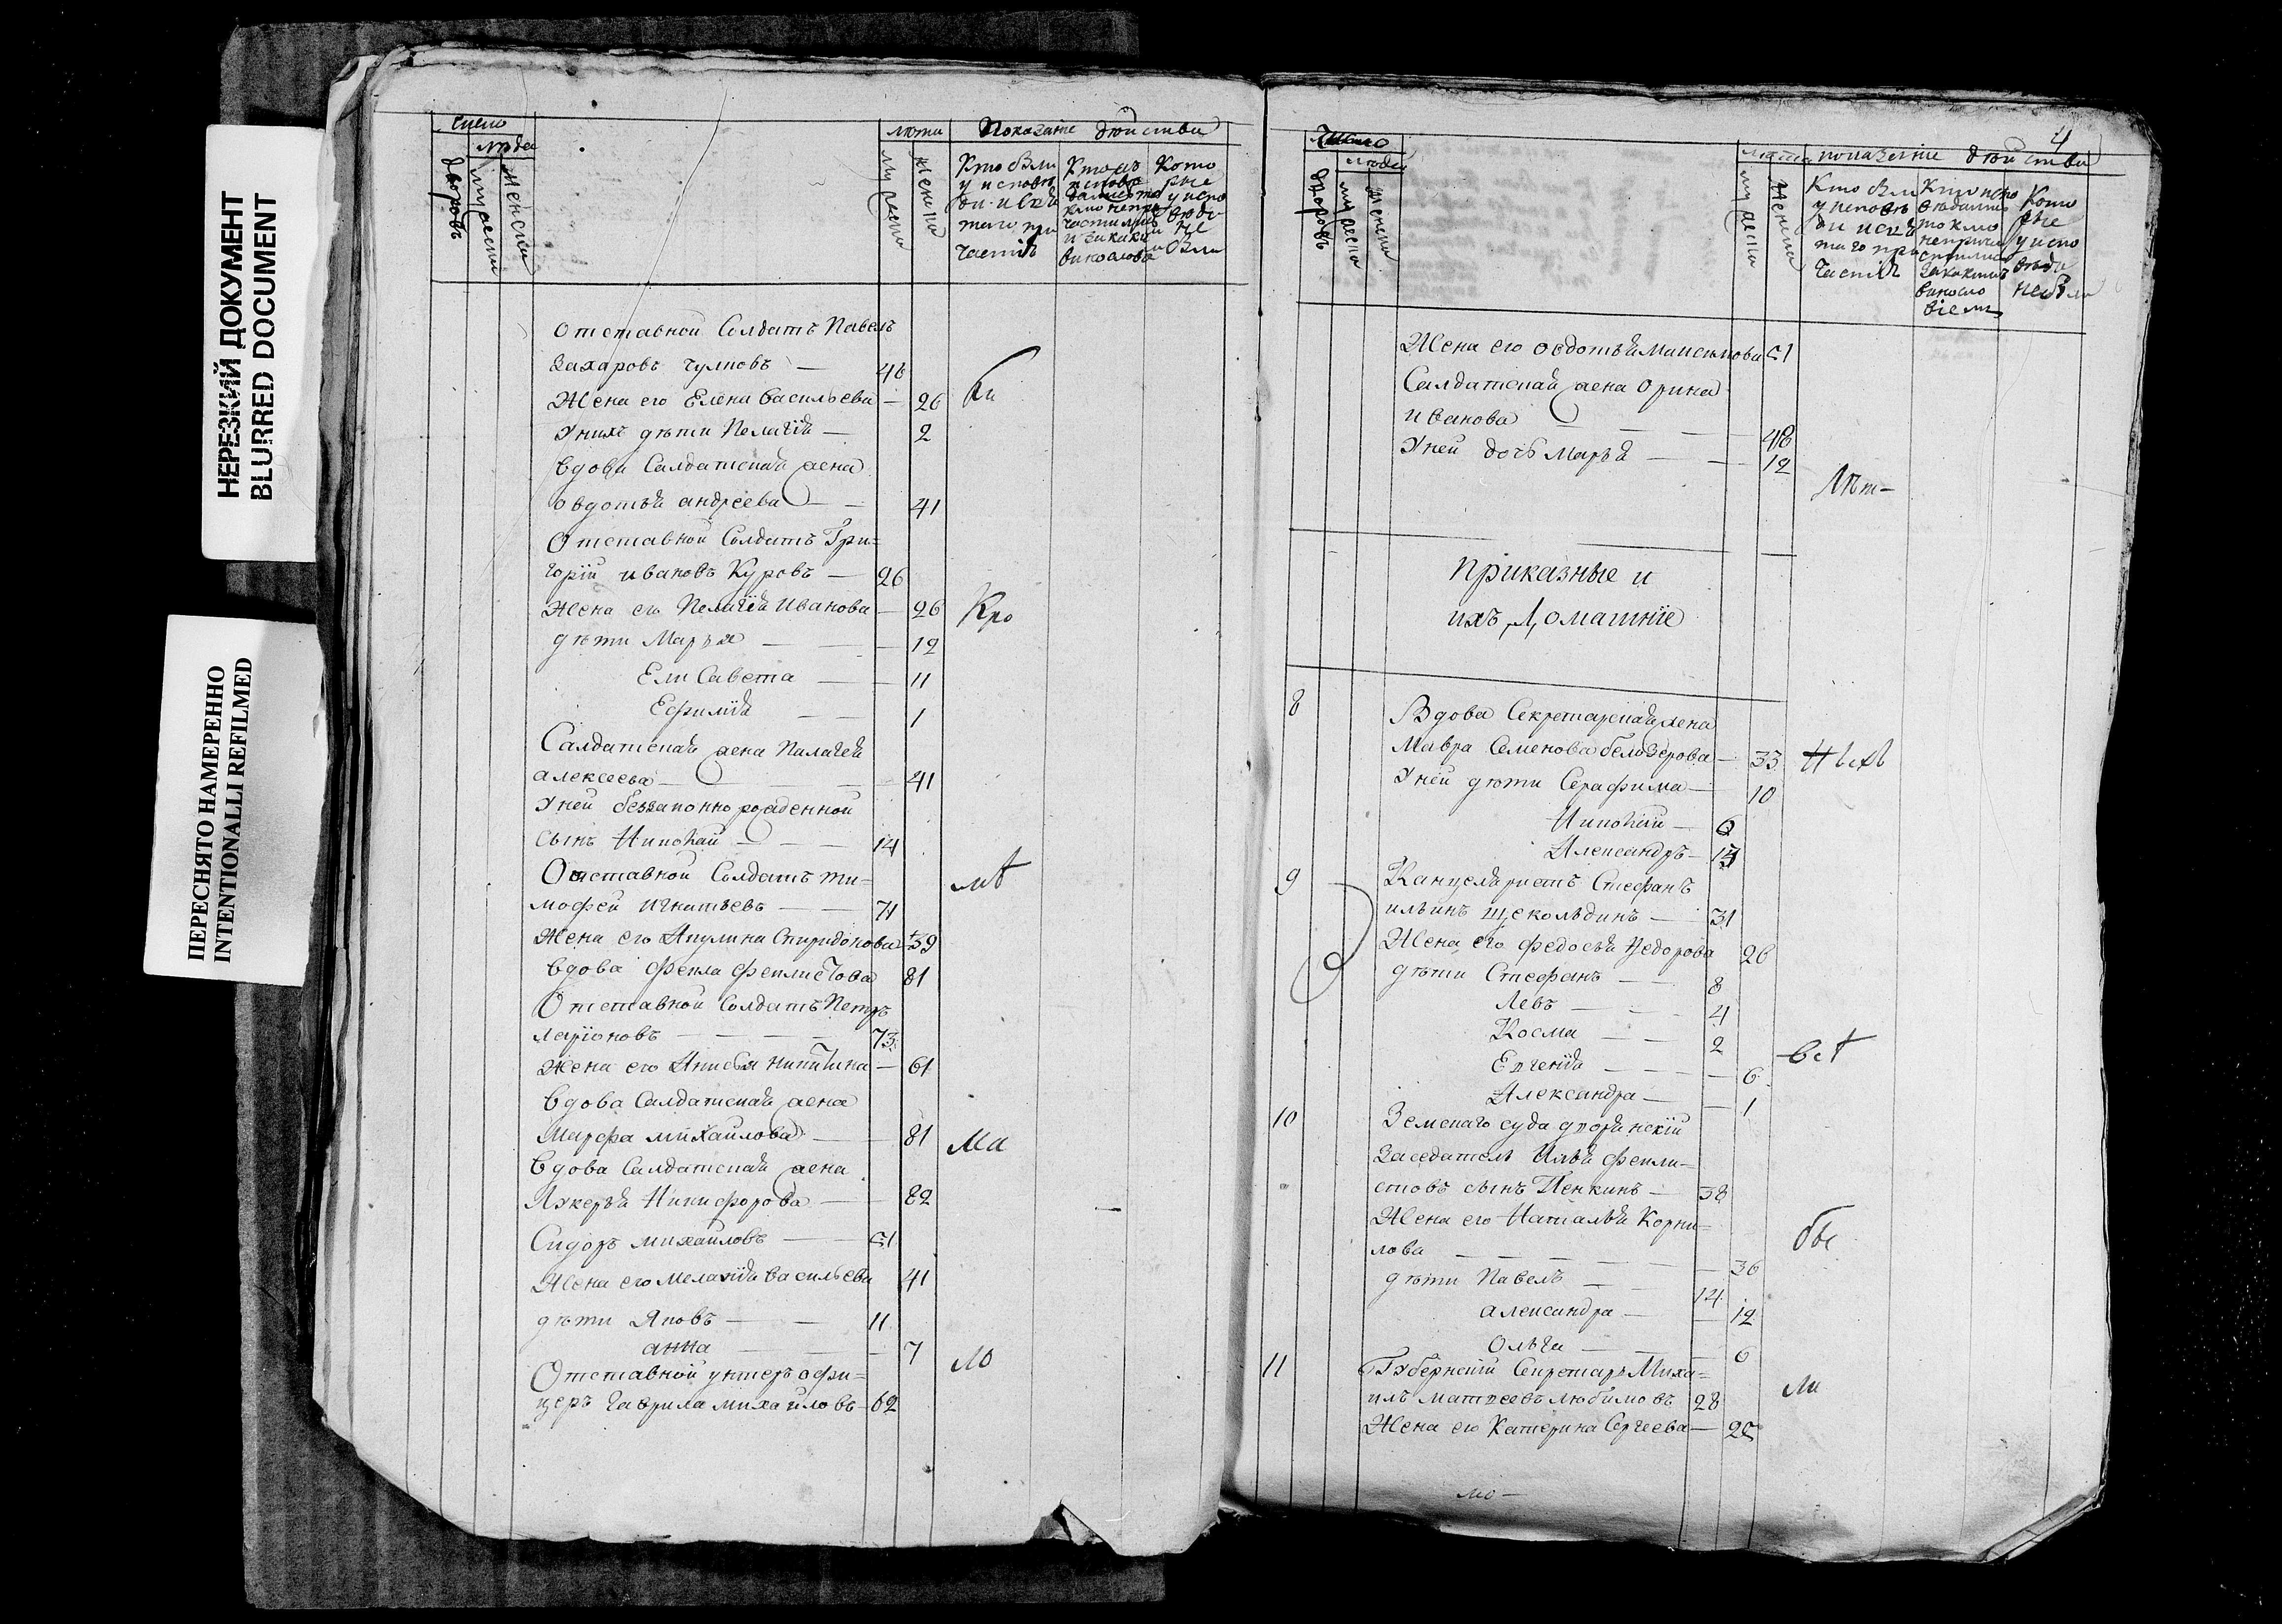 НЕРЕЗКИЙ ДОКУМЕНТ
BLURRED DOCUMENT
ПЕРЕСНЯТО НАМЕРЕННО
INTENTIONALLI REFILMED
число
людей
дворовъ
мужеска
женска
лѣта
мужеска
женска
Показание дѣйства
Кто был
у испове
ди и свя
таго при
частiя
Кото
рые
у испо
веди
не
были
Отставной Солдатъ Павелъ
Захаровъ Чулковъ — 46
Жена его Елена васильева — 26
Унихъ дѣти Пелагiя — 2
вдова Салдатская жена
овдотья андреева — 41
Отставной Солдатъ Гри=
горiй ивановъ Куровъ — 26
Жена его Пелагiя Иванова — 26
дѣти Марья — 12
Ели Савета — 11
Ефимiя — 1
Салдатская жена Палагея
алексеева — 41
Уней беззаконно рожденной
сынъ Николай — 14
Отставной Солдатъ ти=
мофей игнатьевъ — 71
Жена его Акулина Спиридонова 59
вдова Фекла Феклистова 81
Отставной Солдатъ Петръ
ларiоновъ — 73
Жена его Анисья никитина — 61
вдова Салдатская жена
Марфа михайлова — 81
вдова Салдатская жена
Лукерья Никифорова — 82
Сидоръ михайловъ — 51
Жена его Меланiя васильева 41
дѣти Яковъ — 11
анна — 7
Отставной унтеръ офи=
церъ гаврила михайловъ — 62
Кро
мѣ
Ма
ло
4
число
людей
дворовъ
мужеска
женска
лѣта
мужеска
женска
показание дѣйства
Кто был
у исповѣ
ди и свя
таго при
частiя
Кто испо
ведались
токмо
неприча
стились
и за какимъ
винасло
вiемъ
Кото
рые
у испо
веди
небыли
Жена его овдотья Максимова 51
Салдатская жена Орина
иванова — 48
Уней дочь Марья — 12
лѣт—
Приказные и
ихъ Домашнiе
8 Вдова Секретарская жена
Мавра Семенова белозерова — 33
Уней дѣти Серафима — 10
Николай — 6
Александръ — 13
9 Канцеляристъ Стефанъ
ильинъ щекольдинъ — 31
Жена его федосья Федорова 26
дѣти Стефанъ — 8
Левъ — 4
Косма — 2
Евгенiя — 6
Александра — 1
всѣ
10 Земскаго суда дворянскiй
Заседатель Илья фекли=
стовъ сынъ Пенкинъ — 38
Жена его Наталья Корни=
лова — 36
дѣти Павелъ — 14
александра — 12
Ольга — 6
бы
11 Губернскiй Секретарь Миха=
илъ матвеевъ любимовъ 28
Жена его Катерина Сергеева — 25
ли
мо—